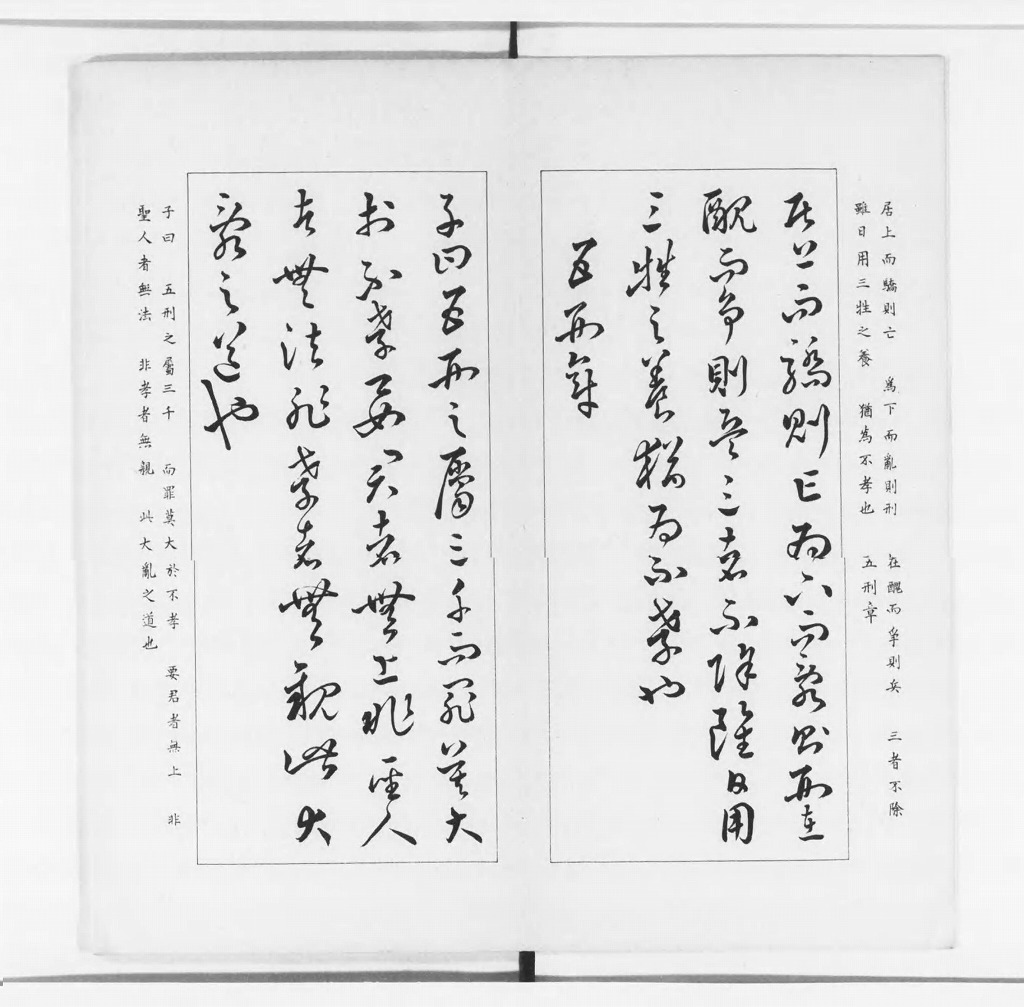 居上而驕則亡 爲下而亂則刑 在醜而爭則兵 三者不除
雖日用三牲之養 猶爲不孝也 五刑章
居上而驕則亡爲下而亂則刑在
醜而爭則兵三者不除雖日用
三牲之養猶爲不孝也
五刑章
子曰五刑之屬三千而罪莫大
於不孝要君者無上非聖人
者無法非孝者無親此大
亂之道也
子曰 五刑之屬三千 而罪莫大於不孝 要君者無上 非
聖人者無法 非孝者無親 此大亂之道也